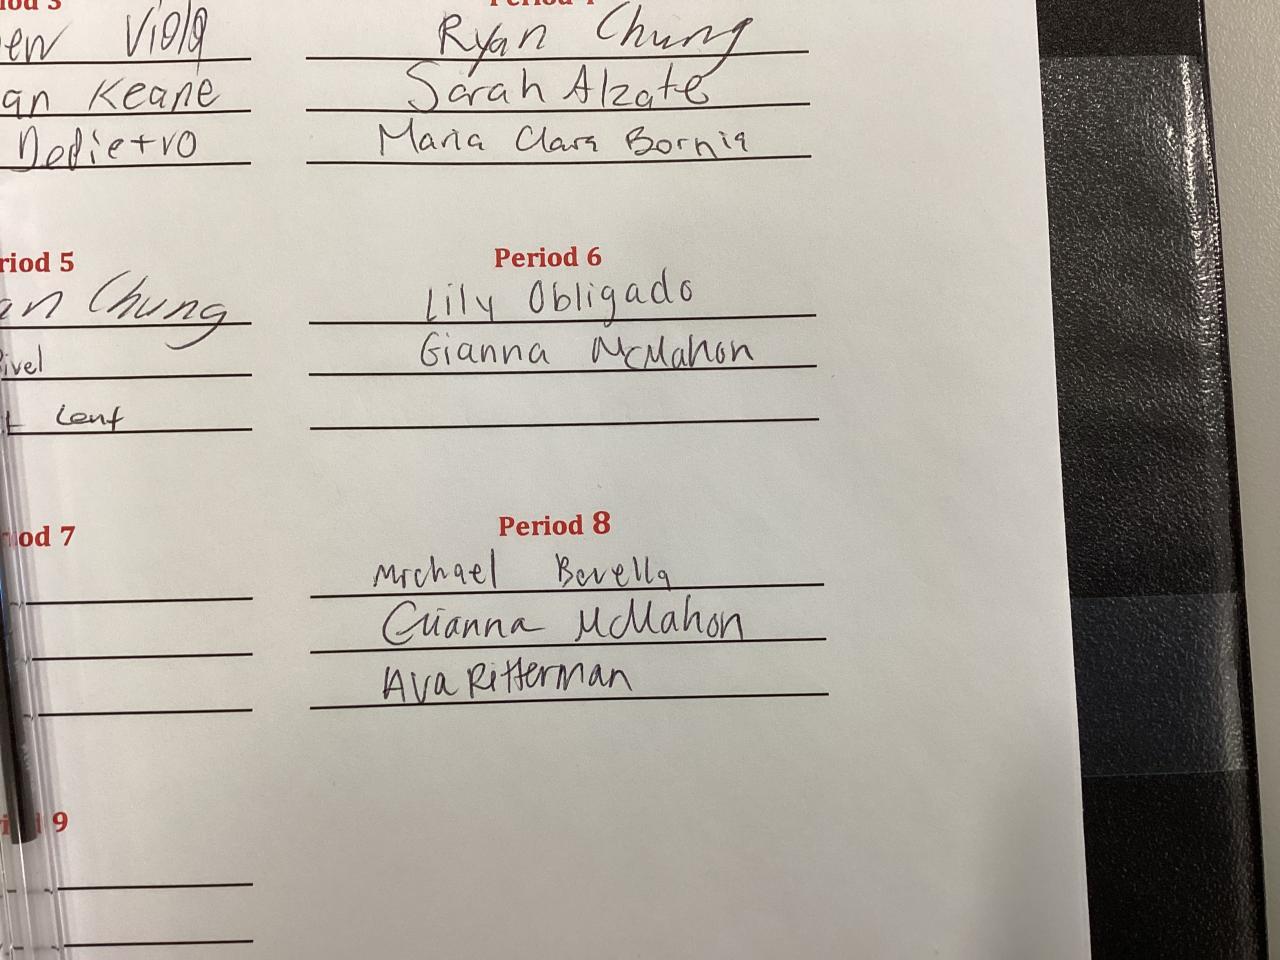 Viola
Keane
Dedietro
Ryan Chung
Sarah Alzate
Maria Clara Bornia
5
Chung
Lent
Period 6
Lily Obligado
Gianna McMahon
7
Period 8
Michael Bovella
Gianna McMahon
Ava Ritterman
9